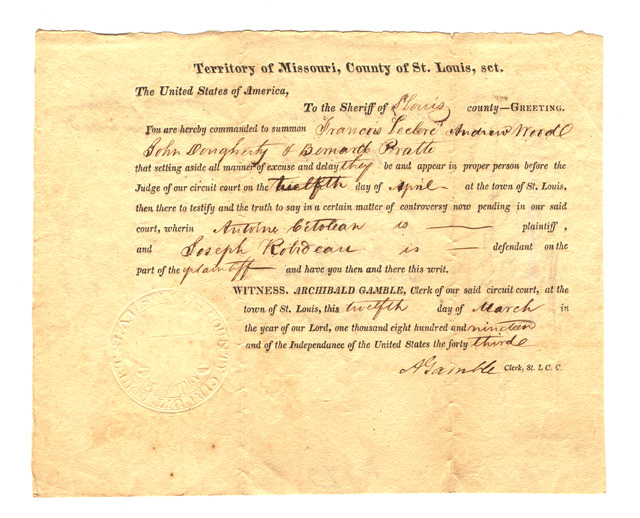 Territory of Missouri, County of St. Louis, sct.
The United States of America,
To the Sheriff of St Louis county—GREETING.
You are hereby commanded to summon Francois Leclerc Andrew Wood
John Dougherty & Bernard Pratte
that setting aside all manner of excuse and delay they be and appear in proper person before the
Judge of our circuit court on the twelfth day of April at the town of St. Louis,
then there to testify and the truth to say in a certain matter of controversy now pending in our said
court, wherein Antoine is — plaintiff,
and Joseph Robideau is — defendant on the
part of the plaintiff and have you then and there this writ.
WITNESS. ARCHIBALD GAMBLE, Clerk of our said circuit court, at the
town of St. Louis, this twelfth day of March in
the year of our Lord, one thousand eight hundred and nineteen
and of the Independance of the United States the forty third
AGamble Clerk, St. L C. C.
ST. LOUIS COUNTY CIRCUIT COURT